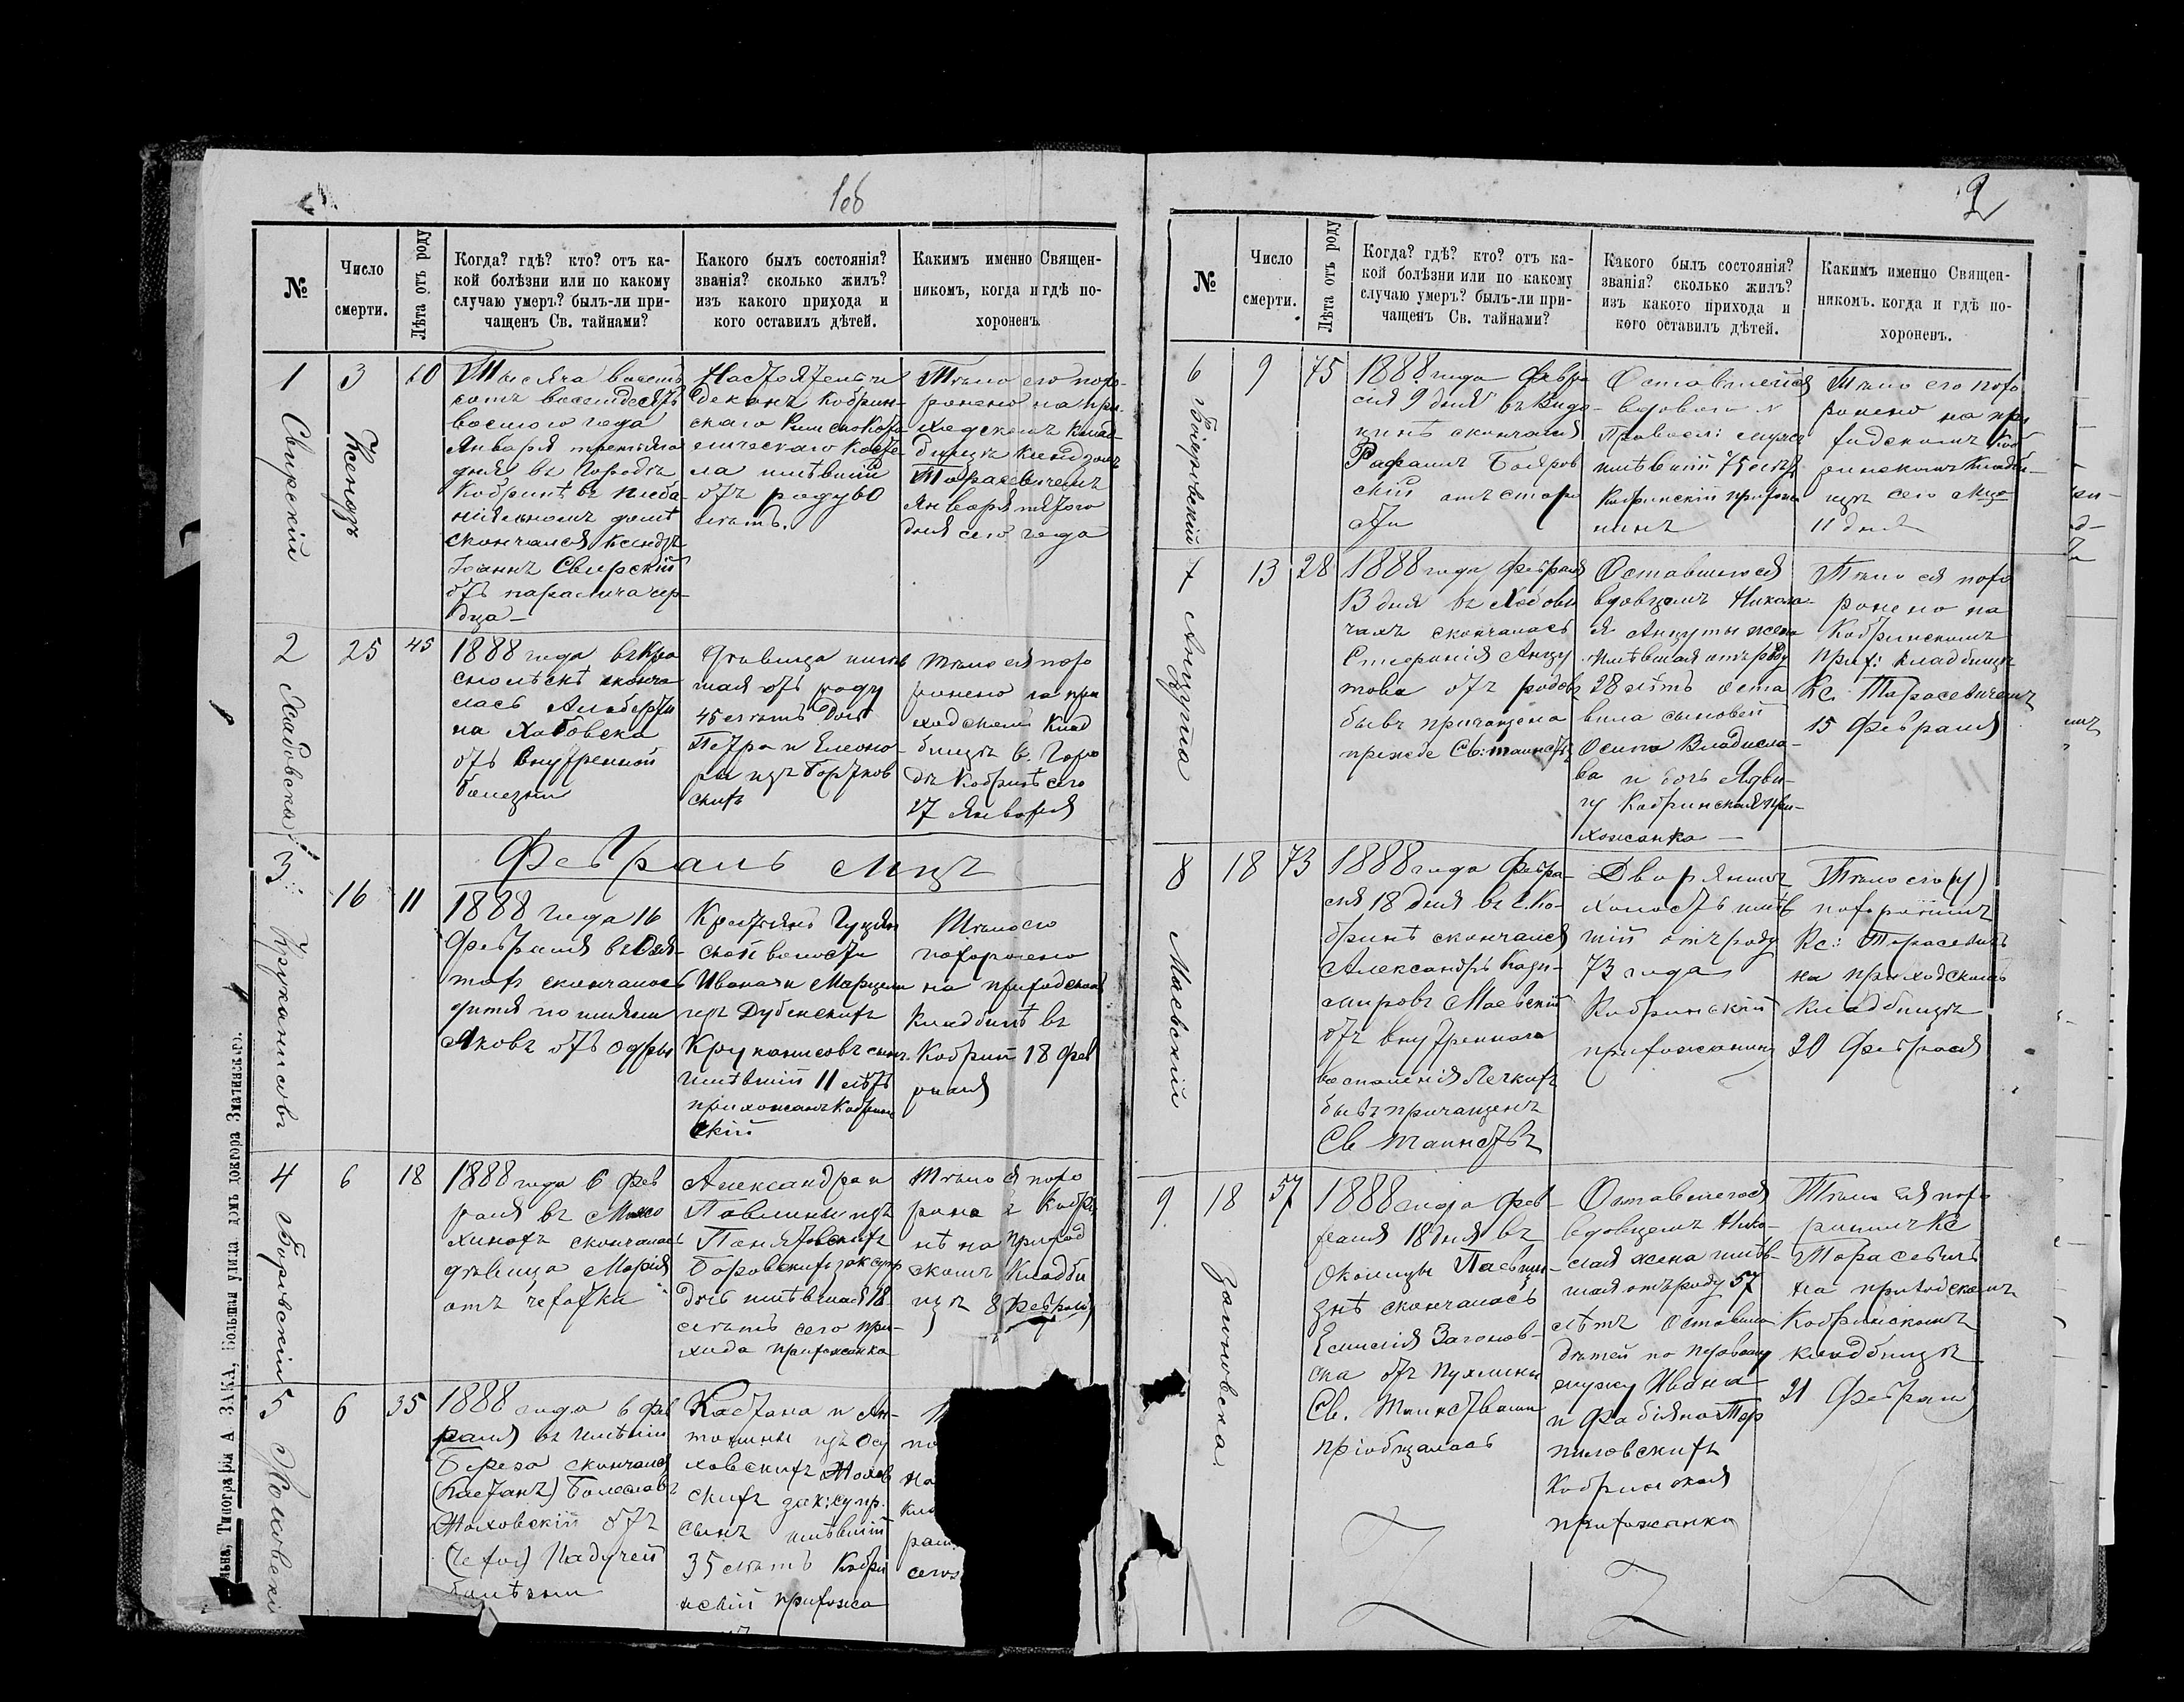 1об
№
Число
смерти.
Лѣта отъ роду
Когда? гдѣ? кто? отъ ка-
кой болѣзни или по какому
случаю умеръ? былъ-ли при-
чащенъ Св. тайнами?
Какого былъ состоянія?
званія? сколько жилъ?
изъ какого прихода и
кого оставилъ дѣтей.
Какимъ именно Священ-
никомъ, когда и гдѣ по-
хороненъ.
1
Свирскій
Ксендзъ
3
60
Тысяча восемь
сотъ восемдесятъ
восмого года
Января третьяго
дня въ Городѣ
Кобринѣ въ плеба
ніяльномъ домѣ
скончался Ксендзъ
Іоаннъ Свирскій
отъ паралича сер-
дца —
Настоятель и
Деканъ Кобрин-
скаго Римскокато
лическаго Косте
ла имѣвшій
отъ роду 60
лѣтъ.
Тѣло его похо-
ронено на при-
ходскомъ клад-
бищѣ Ксендзомъ
Тарасевичемъ
Января пятого
дня сего года
2
25
45
1888 года въ
сконча
лась
на Хабовска
отъ внутренной
болезни
Дѣвица имѣв
шая отъ роду
45 лѣтъ Дочь
Петра и Елеоно-
ры изъ
скихъ
Тѣло ея похо
ронено на при
ходскомъ клад
бищѣ в. Горо
дѣ Кобринѣ сего
27 Января
Февраль мцъ
3
Круконисовъ
16
11
1888 года 16
Февраля въ
скончалось
дитя по имени
Яковъ отъ
Крестьянъ
ской волости
Ивана и
изъ Дубенскихъ
Круконисовъ сынъ
имѣвшій 11 лѣтъ
прихожанъ Кобрин
скій
Тѣло его
похоронено
на приходскомъ
кладбищѣ въ
Кобрин 18 Фев
раля
4
Боровскій
6
18
1888 года 6 Фев
раля въ
скончалась
дѣвица Марія
отъ чехотки
Александра и
Павлины изъ
Боровскихъ зак супр
Дочь имѣвшая 18
лѣтъ сего при-
хода прихожанка
Тѣло ея похо
рона в Кобри
нѣ на приход
скомъ кладби
щѣ 8 Февраля
5
6
35
1888 года 6 Фев
раля въ имѣніи
Береза скончался
(Каетанъ) Болеславъ
отъ
Падучей
болѣзни
Каетана и Ан-
тонины изъ
ховскихъ
скихъ зак: супр.
сынъ имѣвшій
35 лѣтъ Кобри
нскій прихожа
по
на
кла
рал.
сего
льна, Типографія А ЗАКА, Большая улица домъ доктора Зматинскаго.
2
№
Число
смерти.
Лѣта отъ роду
Когда? гдѣ? кто? отъ ка-
кой болѣзни или по какому
случаю умеръ? былъ-ли при-
чащенъ Св. тайнами?
Какого былъ состоянія?
званія? сколько жилъ?
изъ какого прихода и
кого оставилъ дѣтей.
Какимъ именно Священ-
никомъ. когда и гдѣ по-
хороненъ.
6
9
75
1888 года Февра
ля 9 дня въ
скончался
Рафаилъ Бояров
скій отъ старо
сти
Оставшейся
вдовою
Правосл: мужъ
имѣвшій 75 лѣтъ
Кобринскій прихожа
нинъ
Тѣло его похо
ронено на при
ходскомъ Коб
ринскомъ кладби-
щѣ сего мца
11 дня
7
Анцута
13
28
1888 года Февраля
13 дня въ
чахъ скончалась
Стефанія Анцу
това отъ родовъ
бывъ причащена
прежде Св: таинствъ
Оставшагося
вдовцемъ Никола-
я Анцуты жена
имѣвшая отъ роду
28 лѣтъ оста
вила сыновей
Осипа Владисла-
ва и дочь Ядви-
гу Кобринская при-
хожанка —
Тѣло ея похо
ронено на
Кобринскомъ
прих: кладбищѣ
Кс. Тарасевичемъ
15 Февраля
8
Маевскій
18
73
1888 года Февра-
ля 18 дня въ г. Ко-
бринѣ скончался
Александръ Кази-
мировъ Маевскій
отъ внутренного
воспаленія Легкихъ
бывъ причащенъ
Св таинствъ
Дворянинъ
холостъ имѣв
шій отъ роду
73 года
Кобринскій
прихожанинъ
Тѣло его
похоронилъ
Кс: Тарасевичъ
на приходскомъ
кладбищѣ
20 Февраля
9
Загоновска
18
57
1888 года Фев-
раля 18 дня въ
Околицы
скончалась
Емилія Загонов-
ска отъ
Св. Таинствами
пріобщалась
Оставшегося
вдовцемъ Нико-
лая жена имѣв-
шая отъ роду 57
лѣтъ оставила
дѣтей по первому
мужу Ивана
и Фабіяна
пиловскихъ
Кобринская
прихожанка
Тѣло ея похо
ронилъ Кс
Тарасевичъ
на приходскомъ
Кобринскомъ
кладбищѣ
21 Февраля